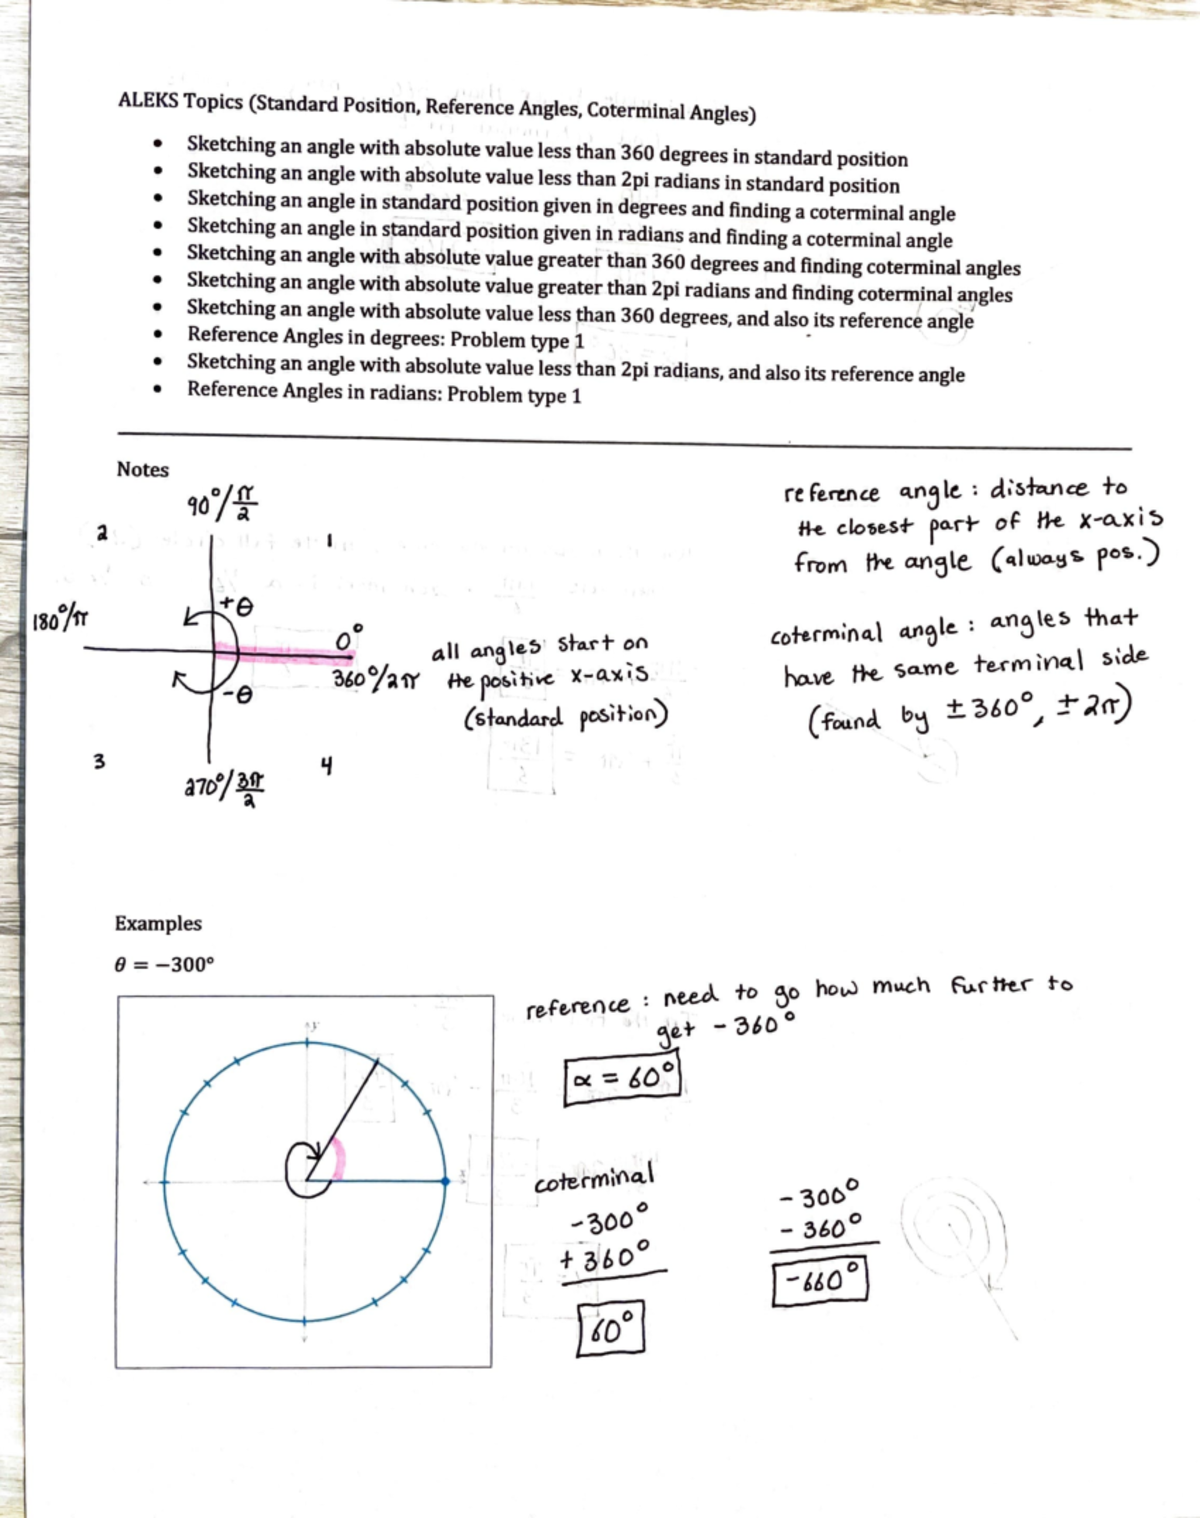 ALEKS Topics (Standard Position, Reference Angles, Coterminal Angles)
• Sketching an angle with absolute value less than 360 degrees in standard position
• Sketching an angle with absolute value less than 2pi radians in standard position
• Sketching an angle in standard position given in degrees and finding a coterminal angle
• Sketching an angle in standard position given in radians and finding a coterminal angle
• Sketching an angle with absolute value greater than 360 degrees and finding coterminal angles
• Sketching an angle with absolute value greater than 2pi radians and finding coterminal angles
• Sketching an angle with absolute value less than 360 degrees, and also its reference angle
• Reference Angles in degrees: Problem type 1
• Sketching an angle with absolute value less than 2pi radians, and also its reference angle
• Reference Angles in radians: Problem type 1
Notes
90°/π/2
2
1
+θ
180°/π
0°
360°/2π
-θ
3
4
270°/3π/2
all angles start on
the positive x-axis
(standard position)
reference angle : distance to
the closest part of the x-axis
from the angle (always pos.)
coterminal angle : angles that
have the same terminal side
(found by ±360°, ±2π)
Examples
θ = −300°
y
x
reference : need to go how much further to
get -360°
α = 60°
coterminal
-300°
+360°
60°
-300°
-360°
-660°